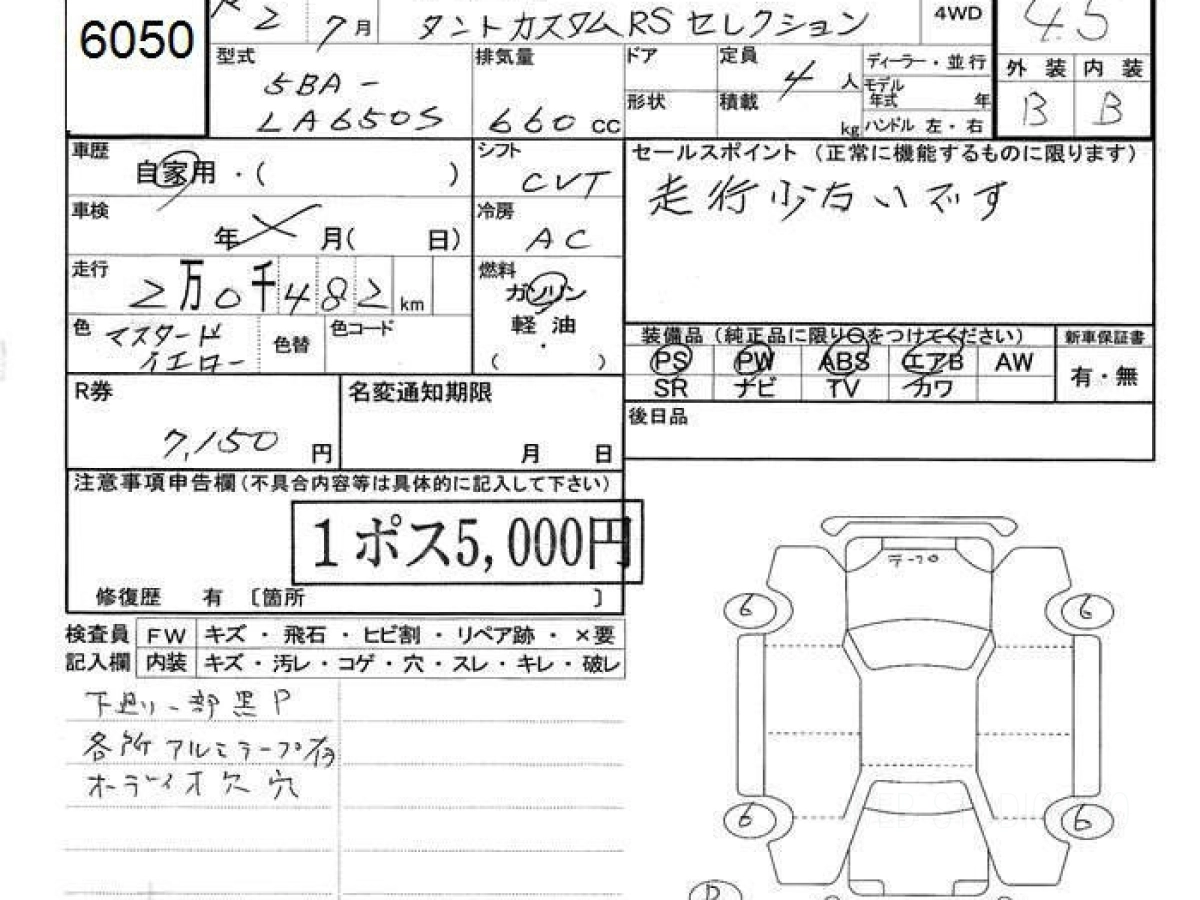 6050
R2 7月
タントカスタムRSセレクション
4WD
4.5
型式
5BA-
LA650S
排気量
660 cc
ドア
定員
4人
形状
積載
kg
ディーラー・並行
モデル年式 年
ハンドル 左・右
外装 内装
B B
車歴
自家用・( )
シフト
CVT
セールスポイント (正常に機能するものに限ります)
走行少ないです
車検
年 月( 日)
冷房
AC
走行
2万0千482km
燃料
ガソリン
軽油
・
( )
色
マスタード
イエロー
色替
色コード
装備品 (純正品に限り○をつけてください)
新車保証書
PS PW ABS エアB AW
有・無
SR ナビ TV カワ
R券
7,150円
名変通知期限
月 日
後日品
注意事項申告欄(不具合内容等は具体的に記入して下さい)
1ポス5,000円
修復歴 有 〔箇所 〕
検査員 FW キズ・飛石・ヒビ割・リペア跡・×要
記入欄 内装 キズ・汚レ・コゲ・穴・スレ・キレ・破レ
下廻り一部黒P
各所アルミテープ有
オーディオ欠穴
テープ
6 6
6 6
D